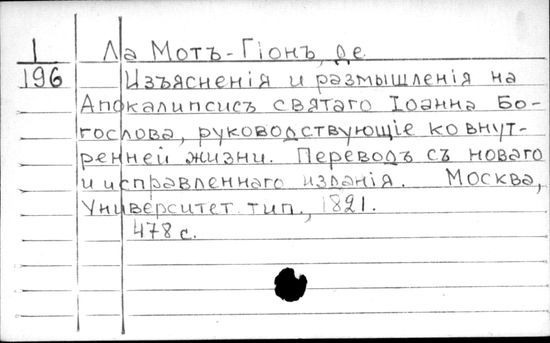 1
196
Ла Мотъ-Гіонъ, де
Изъясненія и размышленія на
Апокалипсисъ святаго Іоанна Бо-
гослова, руководствующіе ко внут-
ренней жизни. Переводъ съ новаго
и исправленнаго изданія. Москва,
Университет. тип., 1821.
478 с.